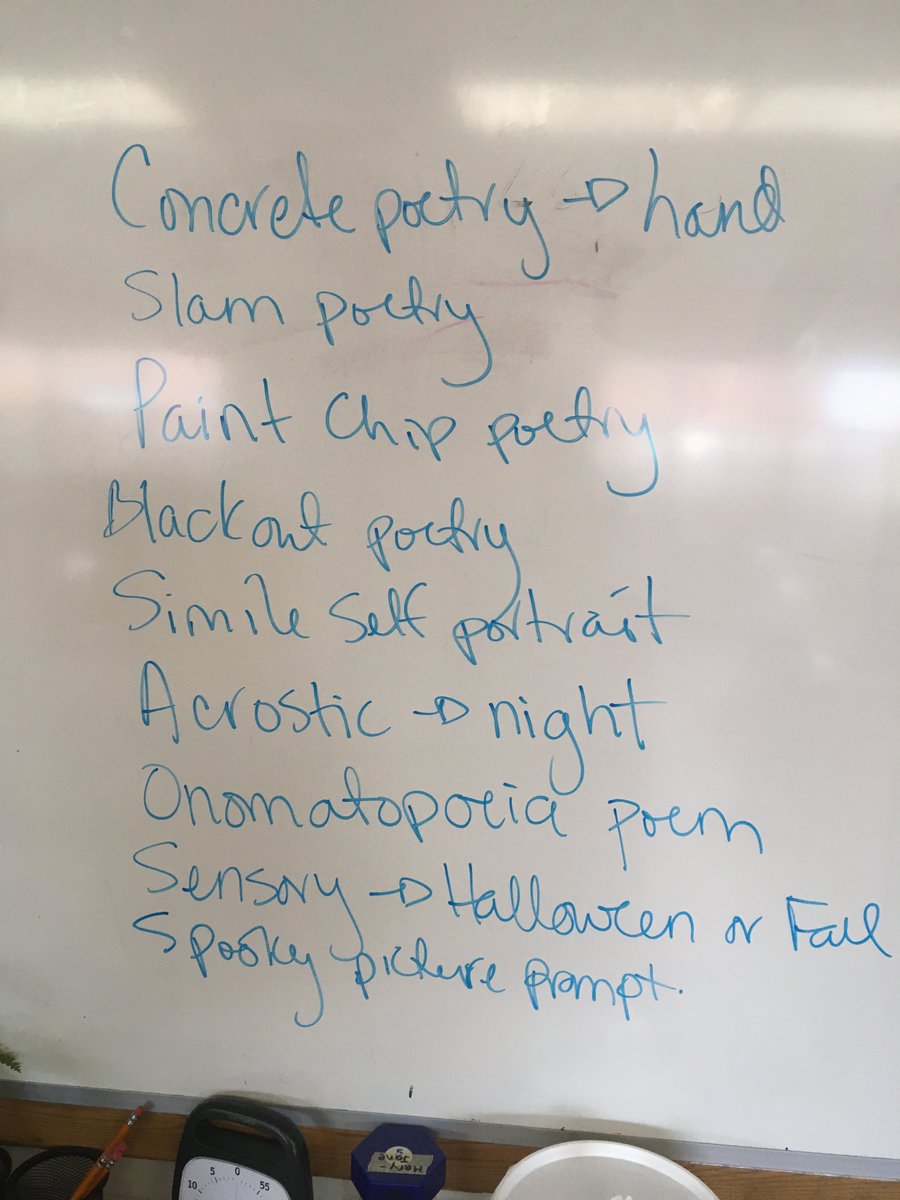 Concrete poetry → hand
Slam poetry
Paint Chip poetry
Blackout poetry
Simile Self portrait
Acrostic → night
Onomatopoeia poem
Sensory → Halloween or Fall
Spooky picture prompt.
5 0 55
10
Mary-
Jane